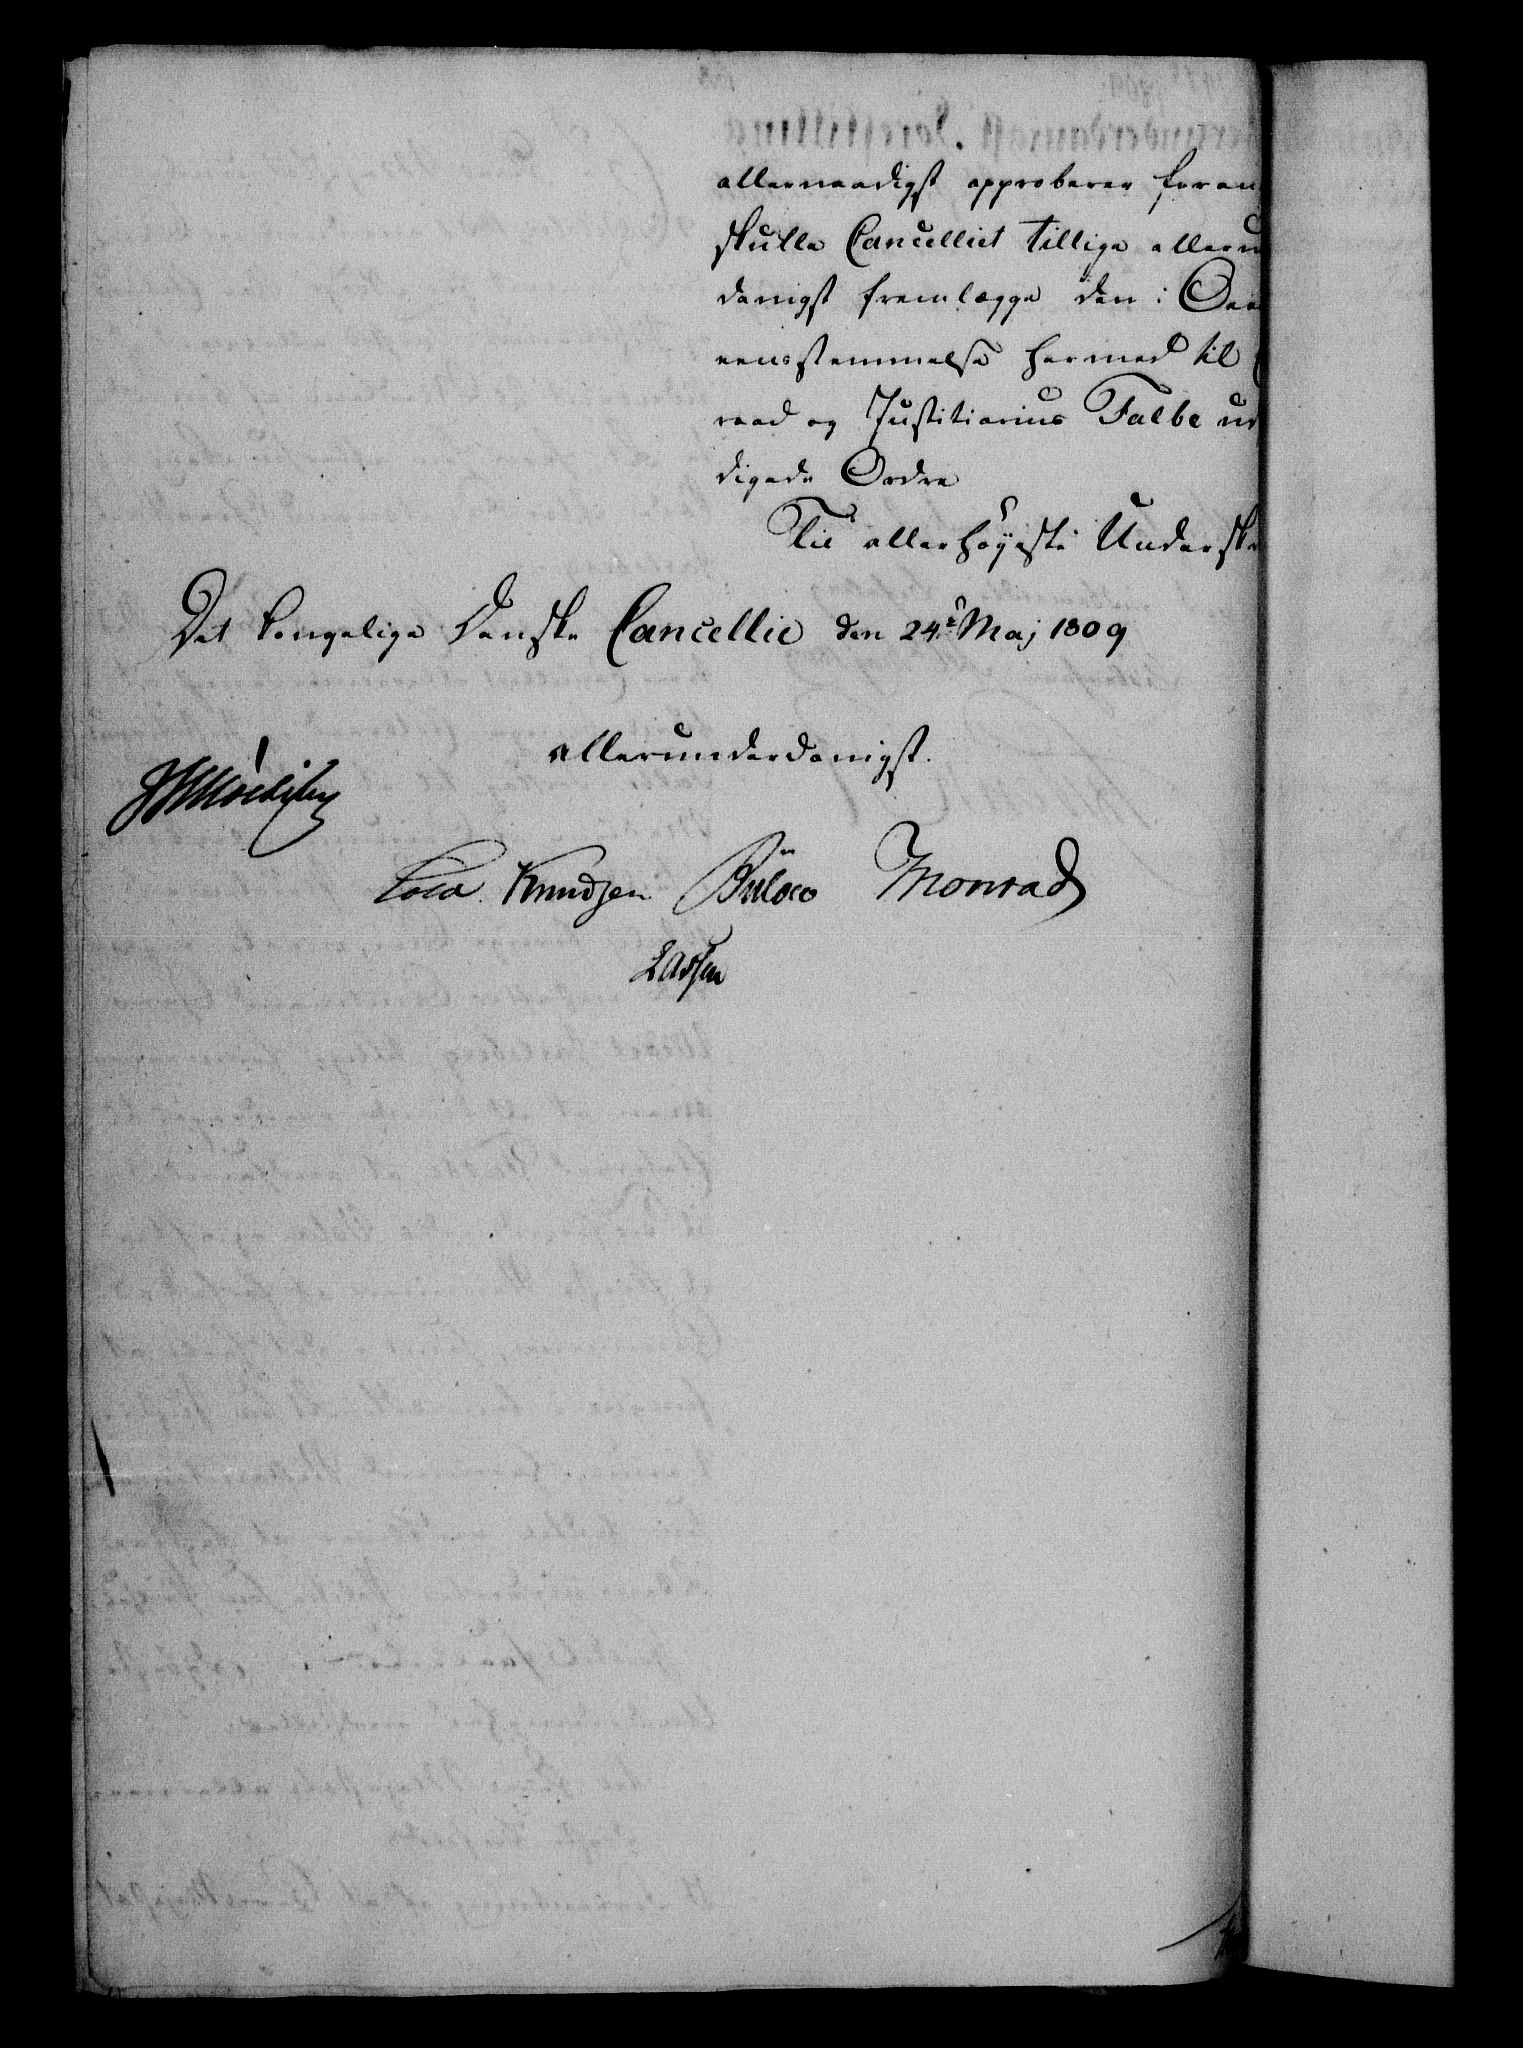 allernaadigst approberer foran
skulle Cancelliet tillige allerun
danigst fremlægge den i Ove
eensstemmelse hermed til
raad og Justitiarius Falbe ud
digede Ordre
Til allerhøyeste Undersk
Det kongelige Danske Cancellie den 24de Maj 1809
allerunderdanigst.
Cold. Knudsen Bülow Monrad
Lassen